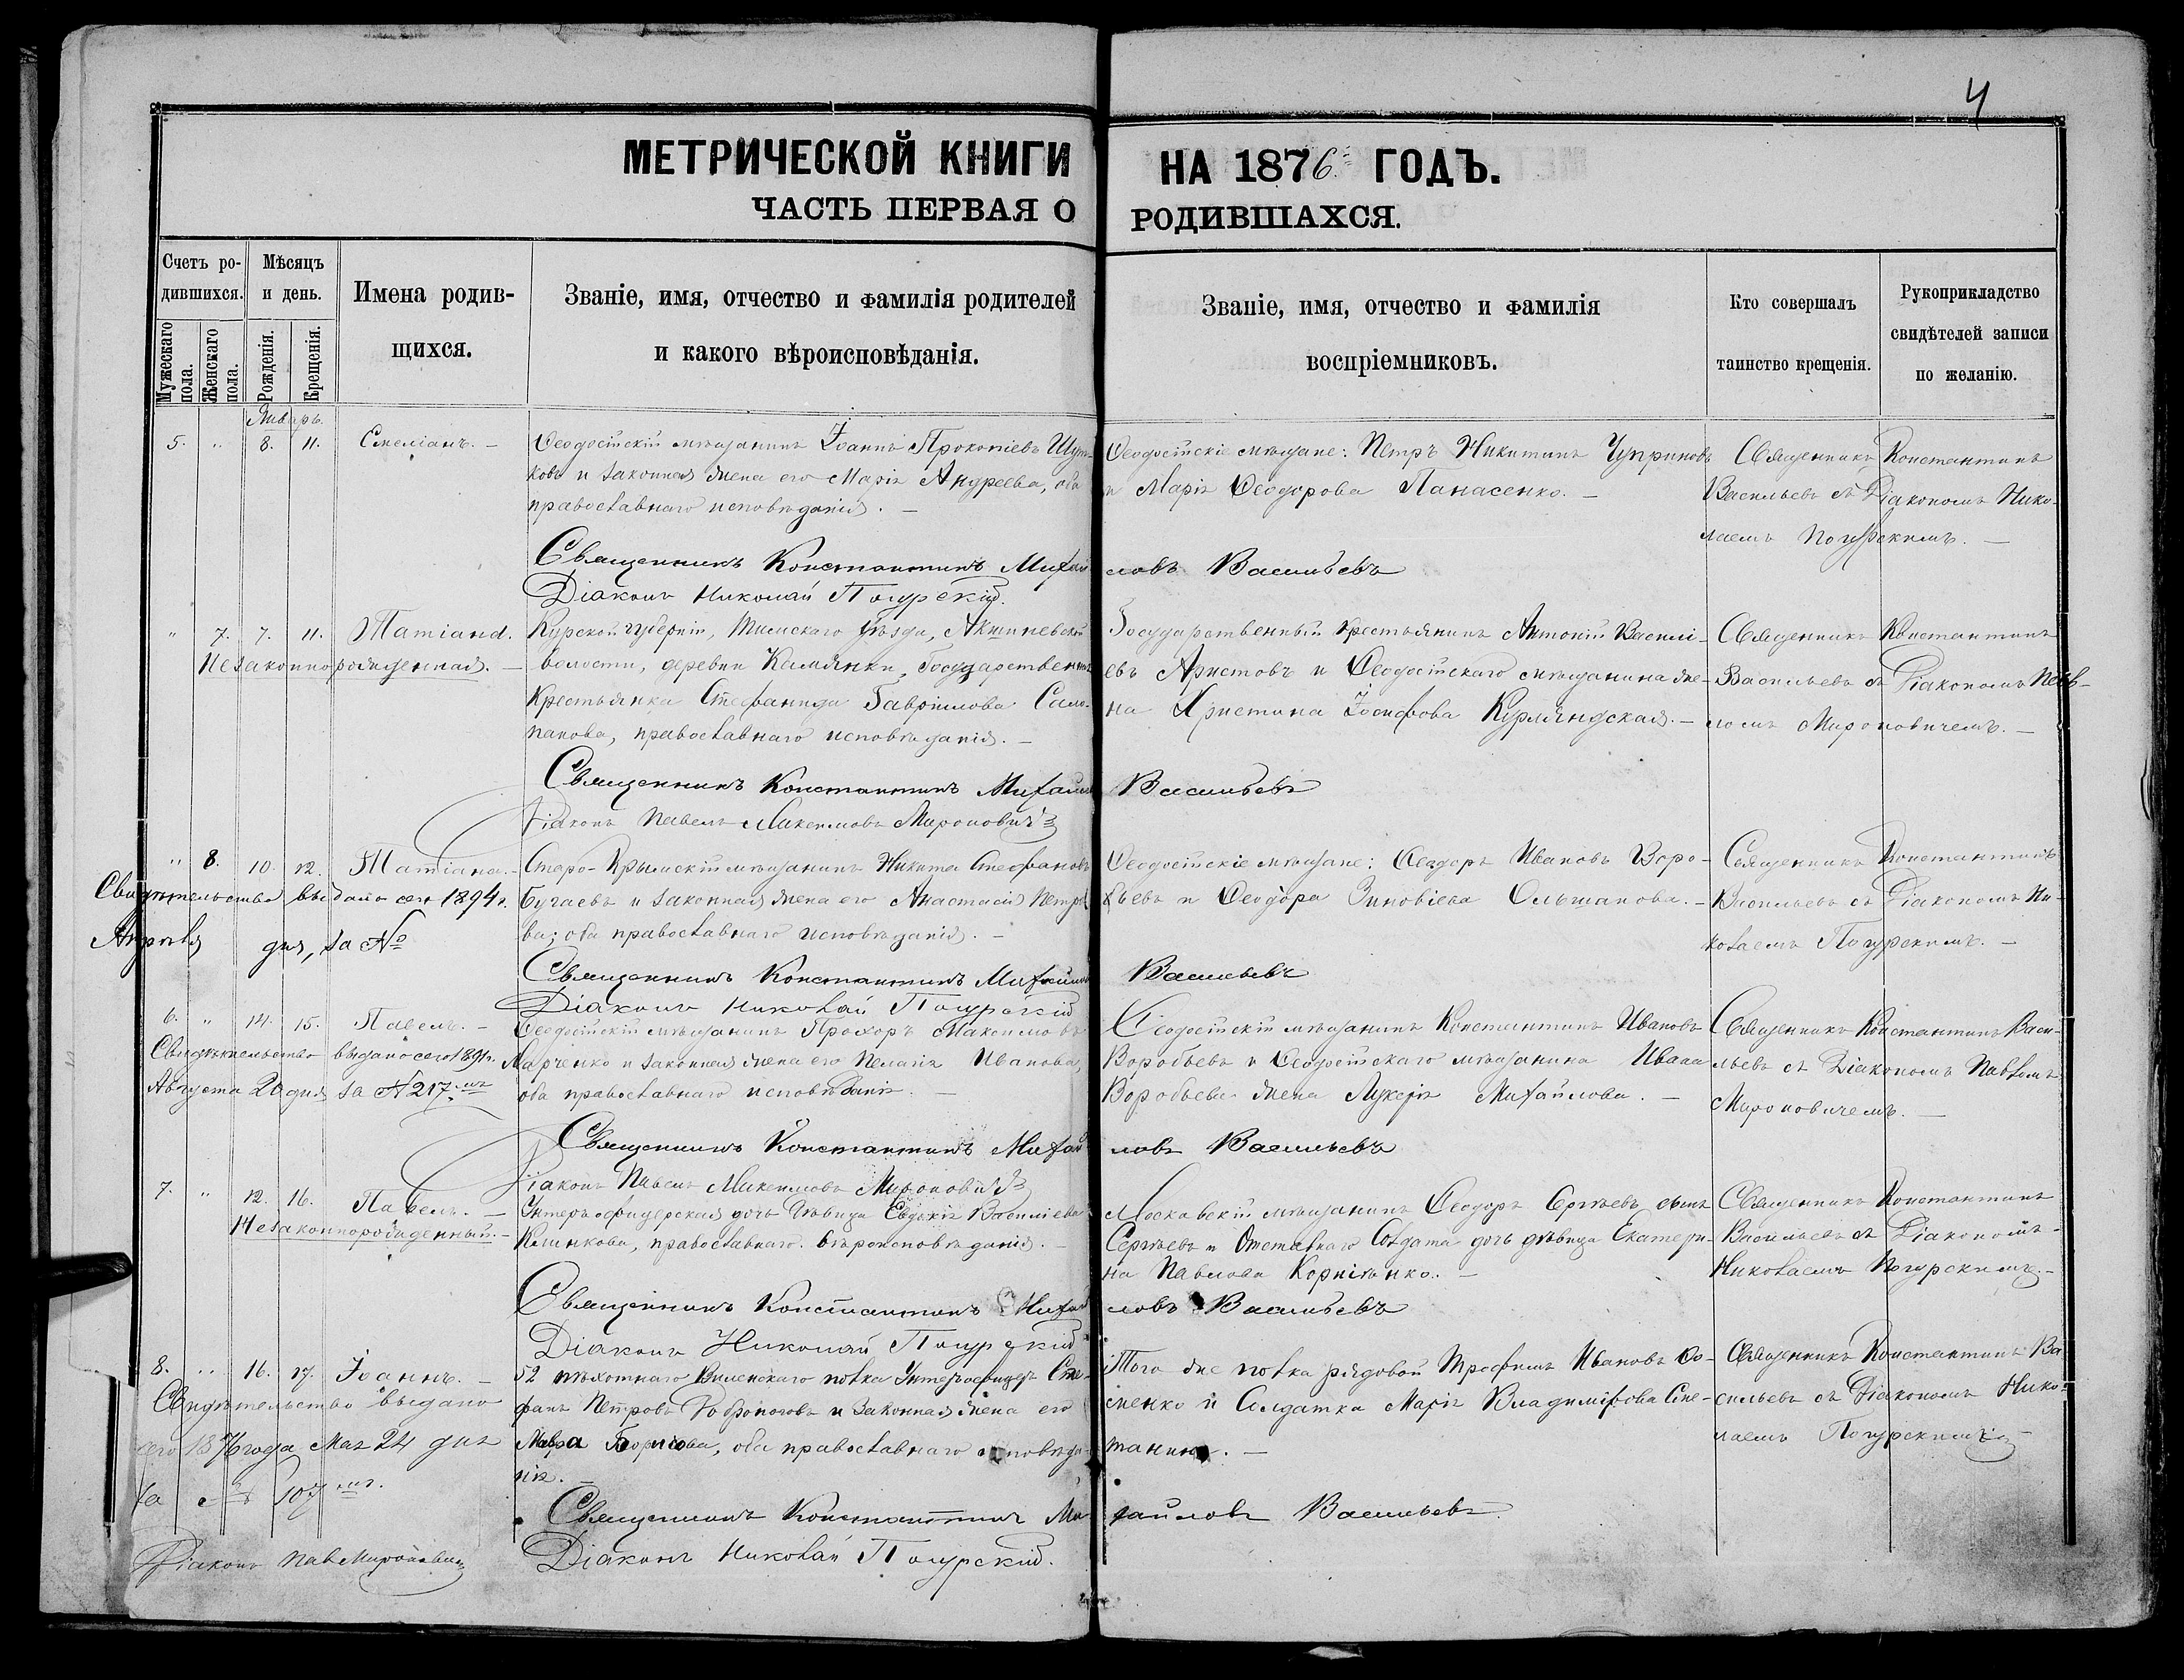 4
МЕТРИЧЕСКОЙ КНИГИ НА 1876 ГОДЪ.
ЧАСТЬ ПЕРВАЯ О РОДИВШАХСЯ.
Счетъ ро-
дившихся.
Мужескаго пола.
Женскаго пола.
Мѣсяцъ
и день.
Рожденія.
Крещенія.
Имена родив-
щихся.
Званіе, имя, отчество и фамилія родителей
и какого вѣроисповѣданія.
Званіе, имя, отчество и фамилія
воспріемниковъ.
Кто совершалъ
таинство крещенія.
Рукоприкладство
свидѣтелей записи
по желанію.
Январь.
5. " 8. 11.
Ѳеодосійскій мѣщанинъ Іоаннъ Прокопіевъ
ковъ и законная жена его Марія Андреева, оба
православнаго исповѣданія. —
Ѳеодосійскіе мѣщане: Петръ Никитинъ Чуприновъ
и Марія Ѳеодорова Панасенко. —
Священникъ Константинъ
Васильевъ съ Діакономъ Нико-
лаемъ Погурскимъ. —
Священникъ Константинъ Михайловъ Васильевъ
Діаконъ Николай Погурскій.
" 7. 7. 11. Татіана.
Незаконнорожденная. —
Курской губерніи, Тимскаго уѣзда,
волости, деревни Государственная
Крестьянка Стефанида Гавріилова
панова, православнаго исповѣданія. —
Государственный крестьянинъ Антоній Василі-
евъ Аристовъ и Ѳеодосійскаго мѣщанина же-
на Христина Іосифова Курляндская. —
Священникъ Константинъ
Васильевъ съ Діакономъ Пав-
ломъ Мироновичемъ. —
Священникъ Константинъ Михайловъ Васильевъ
Діаконъ Павелъ Максимовъ Мироновичъ
" 8. 10. 12. Татіана. —
Свидѣтельство выдано сего 1894 г.
Апрѣля дня, за №
Старо-Крымскій мѣщанинъ Никита Стефановъ
Бугаевъ и законная жена его Анастасія Петро-
ва; оба православнаго исповѣданія. —
Ѳеодосійскіе мѣщане: Ѳеодоръ Ивановъ Воро-
бьевъ и Ѳеодора Зиновіева Ольшанова. —
Священникъ Константинъ
Васильевъ съ Діакономъ Ни-
колаемъ Погурскимъ. —
Священникъ Константинъ Михайловъ Васильевъ
Діаконъ Николай Погурскій
6. " 14. 15. Павелъ. —
Свидѣтельство выдано сего 1891 г.
Августа 20 дня за № 217.
Ѳеодосійскій мѣщанинъ Прохоръ Максимовъ
Марченко и законная жена его Пелагія Иванова,
оба православнаго исповѣданія. —
Ѳеодосійскій мѣщанинъ Константинъ Ивановъ
Воробьевъ и Ѳеодосійскаго мѣщанина Ивана
Воробьева жена Лукерія Михайлова. —
Священникъ Константинъ Васи-
льевъ съ Діакономъ Павломъ
Мироновичемъ. —
Священникъ Константинъ Михайловъ Васильевъ
Діаконъ Павелъ Максимовъ Мироновичъ
7. " 12. 16. Павелъ. —
Незаконнорожденный. —
Унтеръ-офицерская дочь дѣвица Евдокія Василіева
Климкова, православнаго вѣроисповѣданія. —
Московскій мѣщанинъ Ѳеодоръ Сергѣевъ сынъ
Сергѣевъ и Отставнаго Солдата дочь дѣвица Екатери-
на Павлова Корніенко. —
Священникъ Константинъ
Васильевъ съ Діакономъ
Николаемъ Погурскимъ. —
Священникъ Константинъ Михайловъ Васильевъ
Діаконъ Николай Погурскій
8. " 16. 17. Іоаннъ. —
Свидѣтельство выдано
сего 1876 года Мая 24 дня
за № 107.
Діаконъ Пав Мироновичъ
52 пѣхотнаго Виленскаго полка Унтеръ-офицеръ Сте-
фанъ Петровъ и законная жена его
Мавра Борисова, оба православнаго исповѣда-
нія. —
Того же полка рядовой Трофимъ Ивановъ
сменко и Солдатка Марія Владимірова Сте-
танина. —
Священникъ Константинъ Ва-
сильевъ съ Діакономъ Нико-
лаемъ Погурскимъ —
Священникъ Константинъ Михайловъ Васильевъ
Діаконъ Николай Погурскій.